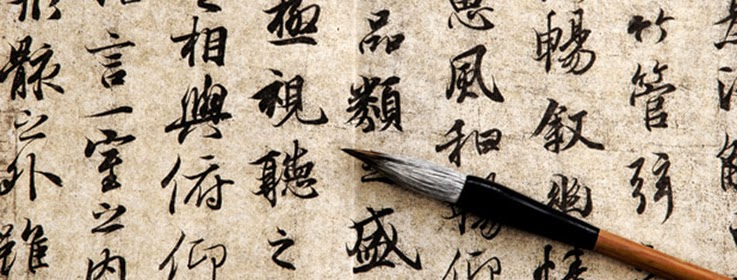 竹管弦
暢叙幽情
惠風和暢
品類之盛
極視聽之
相與俯仰
言一室之内
形骸之外雖